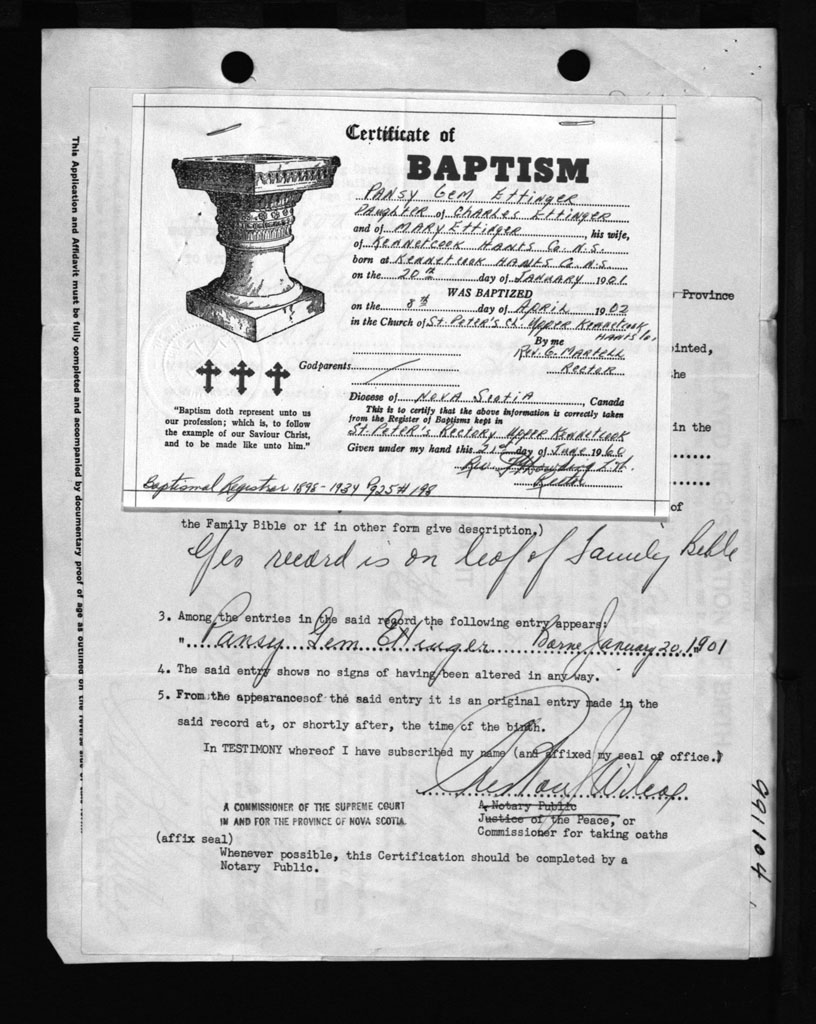 Certificate of
BAPTISM
PANSY GEM ETTINGER
DAUGHTER of CHARLES ETTINGER
and of MARY ETTINGER, his wife,
of KENNETCOOK HANTS Co. N.S.
born at KENNETCOOK HANTS Co. N.S.
on the 20th day of JANUARY 1901
WAS BAPTIZED
on the 8th day of APRIL 1902
in the Church of St. PETER'S Ch. Upper Kennetcook
HANTS Co.
By me
Rev. G. MARTELL
RECTOR
Godparents
Diocese of NOVA SCOTIA, Canada
This is to certify that the above information is correctly taken
from the Register of Baptisms kept in
St. PeteR's RectoRy UppeR Kennetcook
Given under my hand this 21st day of June 1966
Rev.
Rector
"Baptism doth represent unto us
our profession; which is, to follow
the example of our Saviour Christ,
and to be made like unto him."
Baptismal Registrar 1898-1934 Pg 25 # 198
Province
ointed,
he
in the
of
the Family Bible or if in other form give description.)
Yes record is on leaf of Family Bible
3. Among the entries in the said record the following entry appears:
" Pansy Gem Ettinger Borne January 20, 1901
4. The said entry shows no signs of having been altered in any way.
5. From the appearances of the said entry it is an original entry made in the
said record at, or shortly after, the time of the birth.
In TESTIMONY whereof I have subscribed my name (and affixed my seal of office.)
Wilcox
A COMMISSIONER OF THE SUPREME COURT
IN AND FOR THE PROVINCE OF NOVA SCOTIA
A Notary Public
Justice of the Peace, or
Commissioner for taking oaths
(affix seal)
Whenever possible, this Certification should be completed by a
Notary Public.
This Application and Affidavit must be fully completed and accompanied by documentary proof of age as outlined on the reverse side of
991104